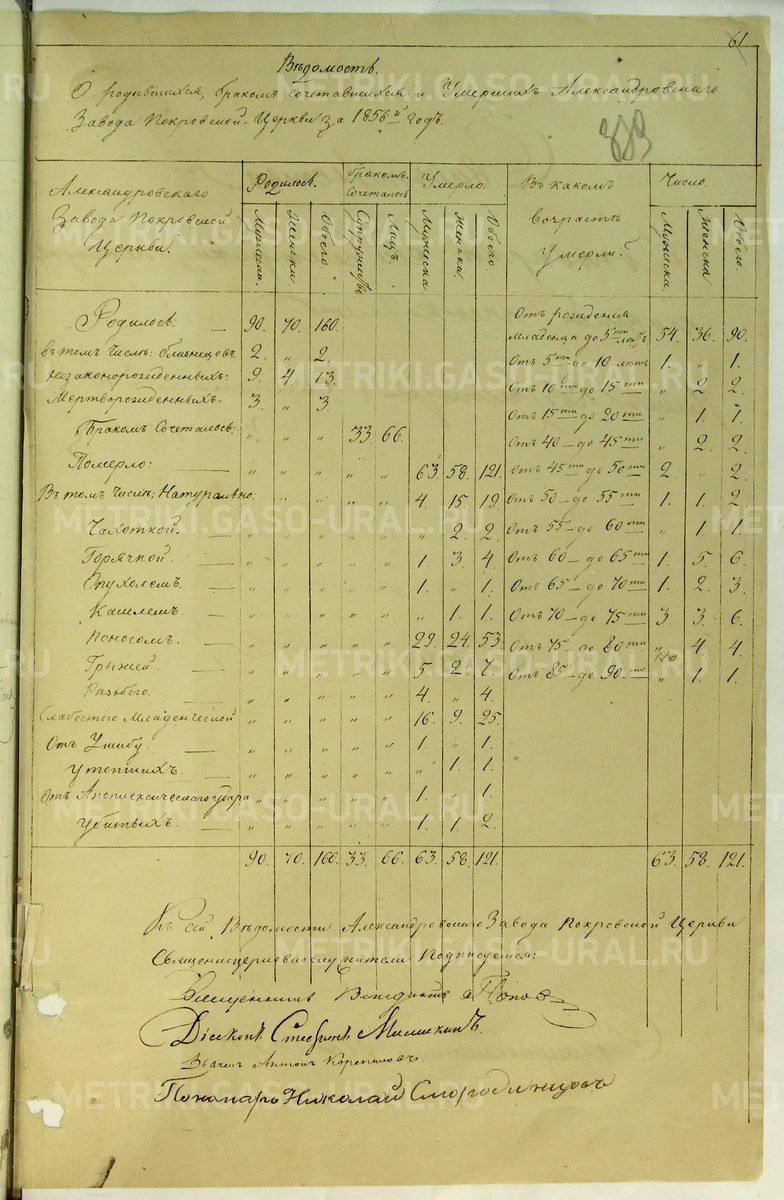 61.
Вѣдомость.
О родившихся, бракомъ сочетавшихся и Умершихъ Александровскаго
Завода Покровской Церкви за 1856й годъ.
Александровскаго
Завода Покровской
Церкви.
Родилось.
Бракомъ
Сочеталось
Умерло.
Въ какомъ
возрастѣ
Умерли?
Число.
Мужеска. Женска. Обоего. Супружествъ Лицъ. Мужеска. Женска. Обоего. Мужеска. Женска. Обоего.
Родилось: — 90. 70. 160. Отъ рожденія
Младенца до 5ти лѣтъ 54. 36. 90.
въ томъ Числѣ: близнецовъ. 2. „ 2. Отъ 5ти до 10 лѣтъ 1. „ 1.
незаконорожденныхъ: 9. 4. 13. Отъ 10ти до 15ти „ 2. 2.
Мертворожденныхъ. 3. „ 3. Отъ 15ти до 20ти „ 1. 1.
Бракомъ Сочеталось: „ „ „ 33. 66. Отъ 40 — до 45ти „ 2. 2.
Померло: — „ „ „ „ „ 63. 58. 121. Отъ 45ти до 50ти 2. „ 2.
Въ томъ Числѣ: Натурально: „ „ „ „ 4. 15. 19. Отъ 50 — до 55ти 1. 1. 2.
Чахоткой. — „ „ „ „ „ „ 2. 2. Отъ 55 — до 60ти „ 1. 1.
Горячкой. — „ „ „ „ „ 1. 3. 4. Отъ 60 — до 65ти 1. 5. 6.
Опухолемъ. „ „ „ „ „ 1. „ 1. Отъ 65 — до 70ти 1. 2. 3.
Кашлемъ. — „ „ „ „ „ „ 1. 1. Отъ 70 — до 75ти 3. 3. 6.
Поносомъ. — „ „ „ „ „ 29. 24. 53. Отъ 75 — до 80ти „ 4. 4.
Грыжей. — „ „ „ „ „ 5. 2. 7. Отъ 85 — до 90.то „ 1. 1.
„ „ „ „ „ 4. „ 4.
Слабостію Младенческой „ „ „ „ „ 16. 9. 25.
Отъ Ушибу. — „ „ „ „ „ 1. „ 1.
Утопшихъ. — „ „ „ „ „ „ 1. 1.
Отъ Апоплексическаго удара „ „ „ „ „ 1. „ 1.
Убитыхъ. — „ „ „ „ „ 1. 1. 2.
90. 70. 160. 33. 66. 63. 58. 121. 63. 58. 121.
Къ сей Вѣдомости Александровскаго Завода Покровской Церкви
Священноцерковнослужители Подписуемся:
Священникъ Венедиктъ Поповъ
Діаконъ Стефанъ Мишкинъ.
Антонъ
Пономарь Николай Смородинцовъ
METRIKI.GASO-URAL.RU